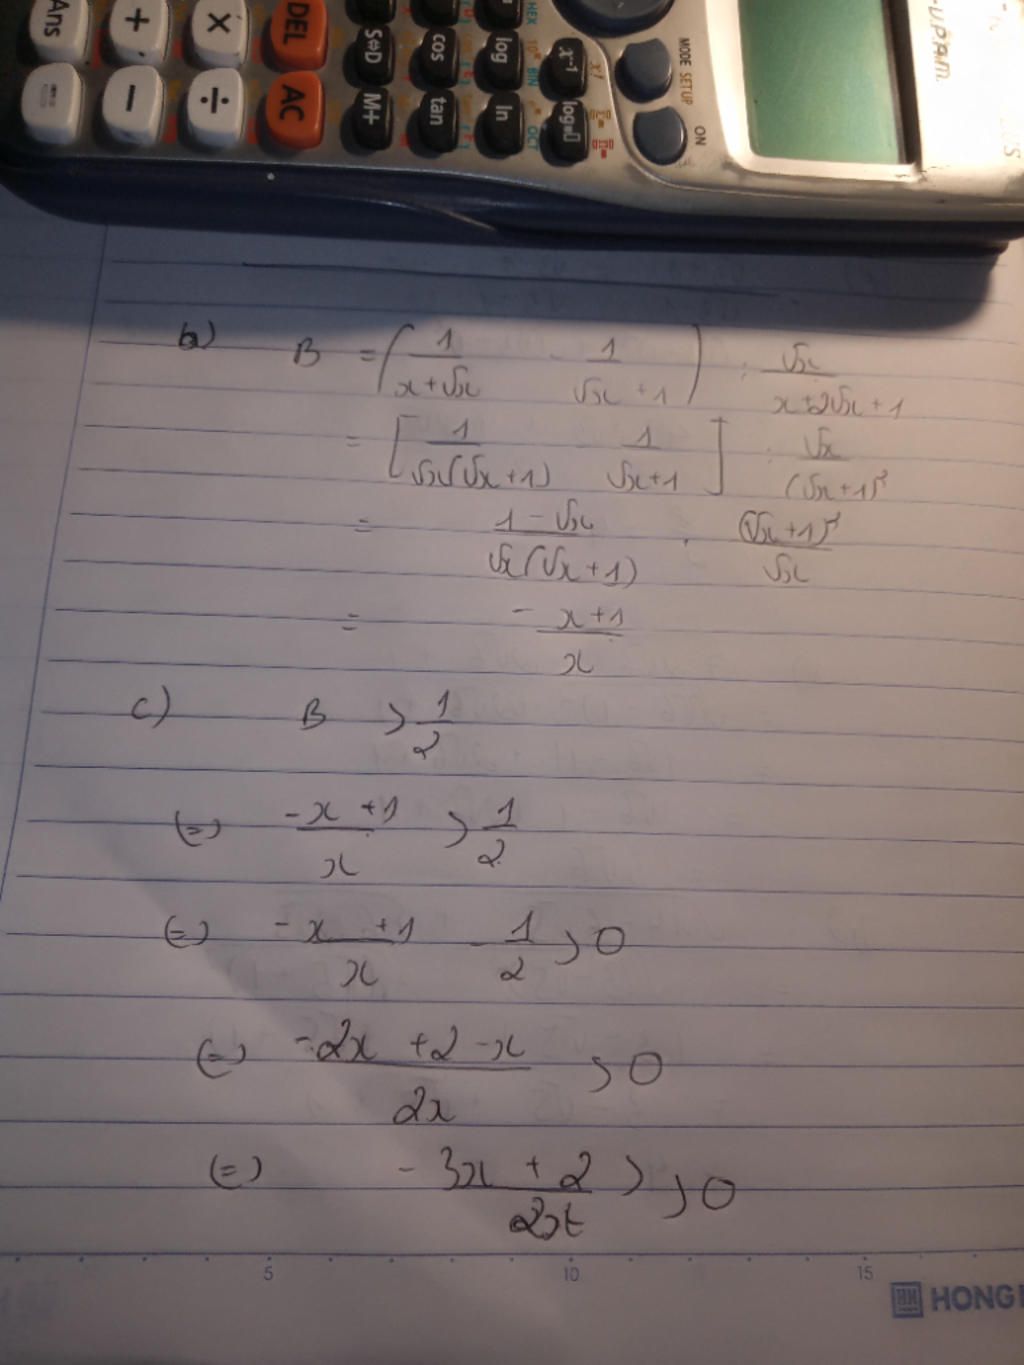 Ans + × DEL S⇔D cos log x⁻¹ MODE SETUP
− ÷ AC M+ tan ln log ON
HEX BIN OCT
b) B = (1/(x+√x) - 1/(√x+1)) : √x/(x+2√x+1)
= [1/(√x(√x+1)) - 1/(√x+1)] : √x/(√x+1)²
= (1-√x)/(√x(√x+1)) . (√x+1)²/√x
= (-x+1)/x
c) B > 1/2
(=) (-x+1)/x > 1/2
(=) (-x+1)/x - 1/2 > 0
(=) (-2x+2-x)/2x > 0
(=) (-3x+2)/2x > > 0
5 10 15
HONG